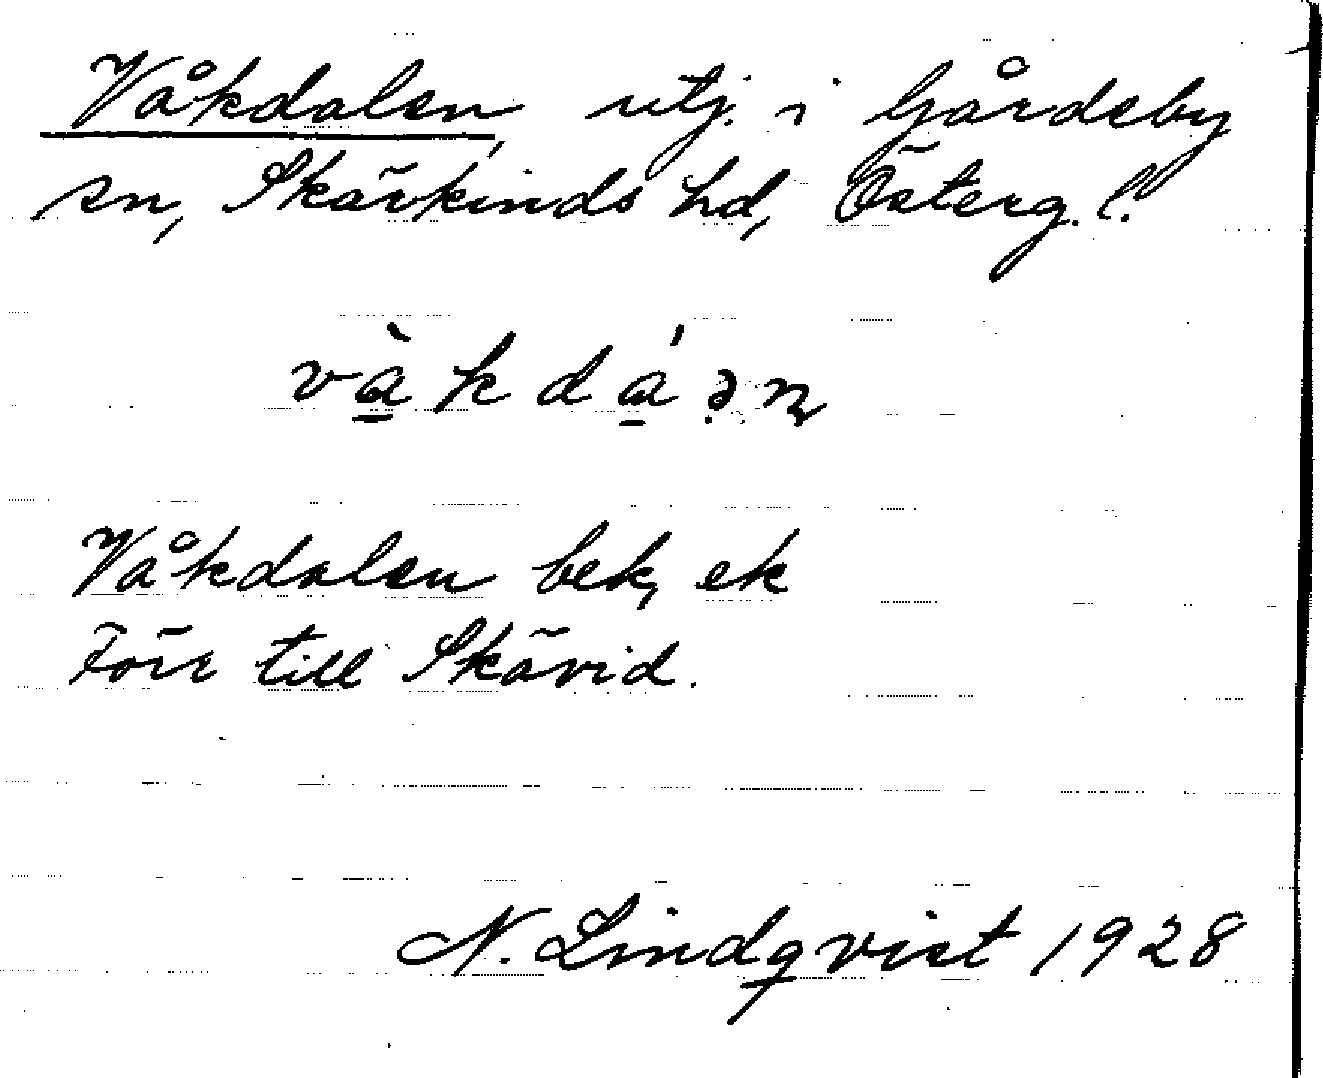 Våkdalen, utj. i Gårdeby
sn, Skärkinds hd, Österg. l.
Våkdalen bek, ek
Förr till Skävid.
N. Lindqvist 1928